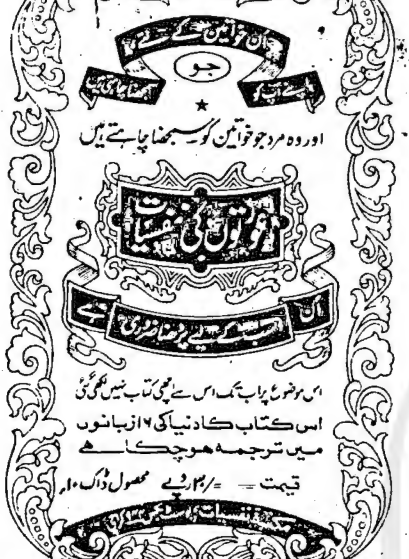 ان خواتین کے لیے
جو
اپنے آپ کو سمجھنا چاہتی ہیں
اور وہ مرد جو خواتین کو سمجھنا چاہتے ہیں
عورتوں کی نفسیات
ان سب کے لیے پڑھنا ضروری ہے
اس موضوع پر اب تک اس سے اچھی کتاب نہیں لکھی گئی
اس کتاب کا دنیا کی ۱۶ زبانوں
میں ترجمہ ہو چکا ہے
قیمت = روپے محصول ڈاک